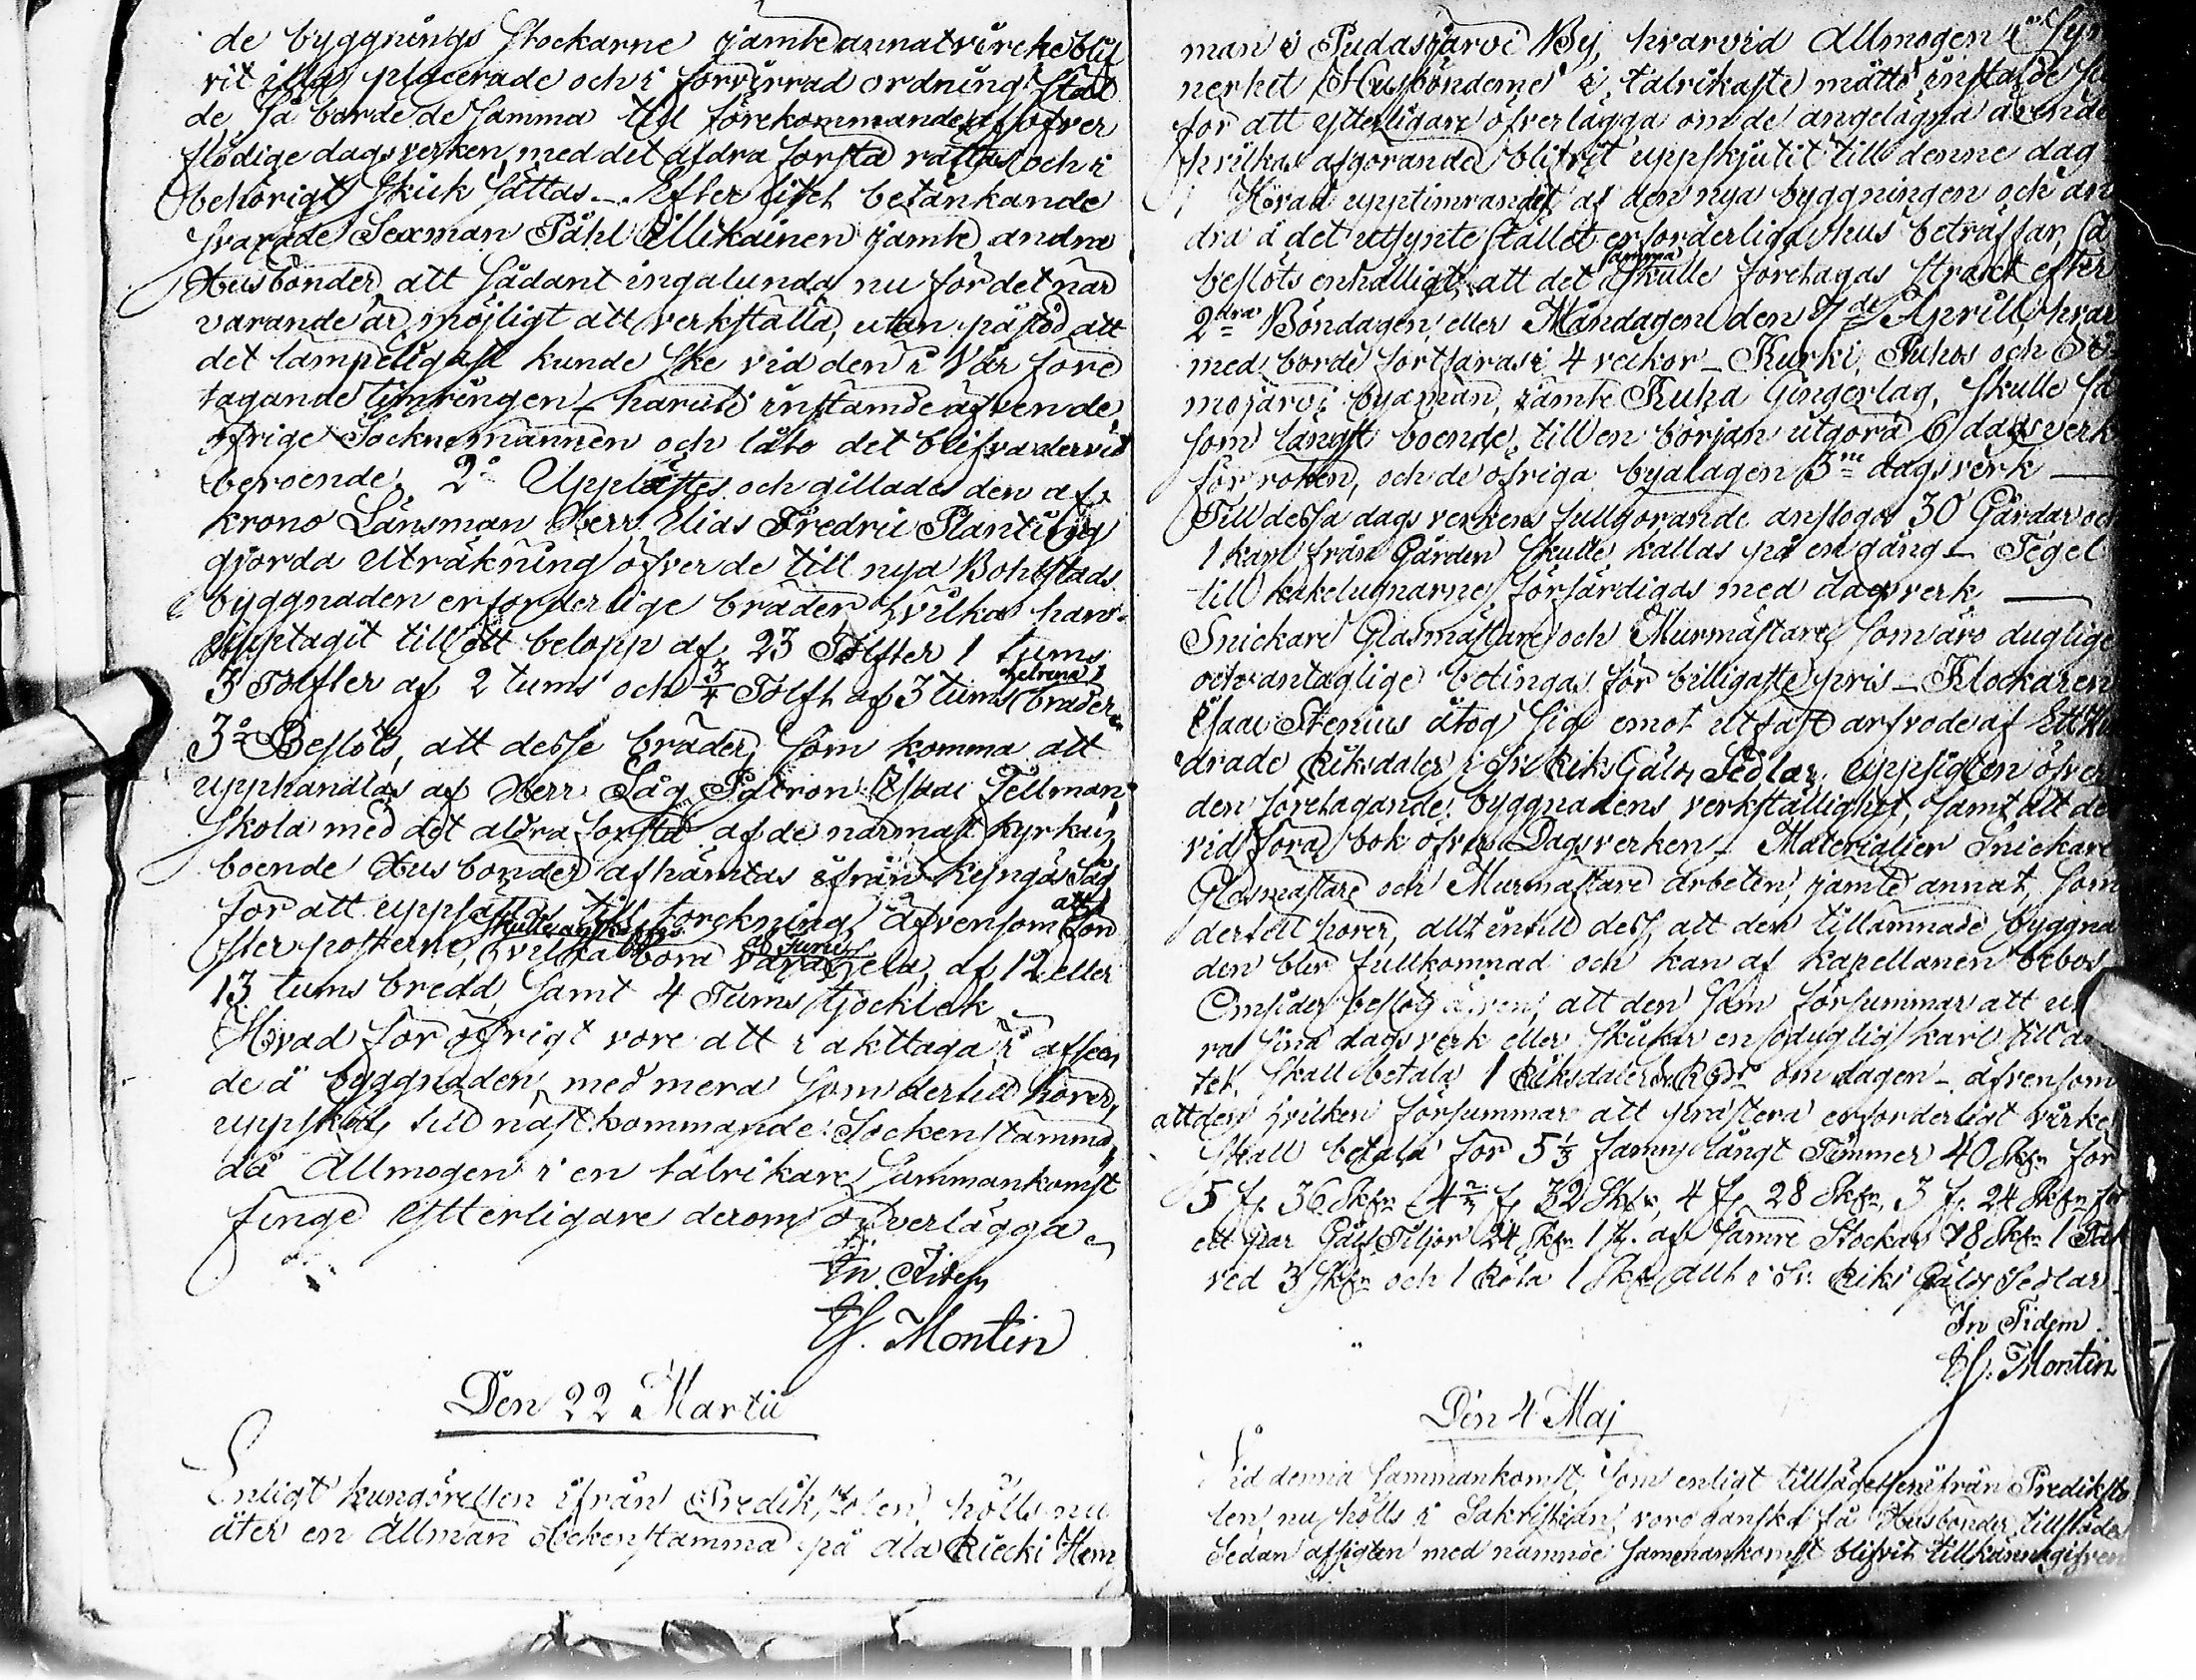 de byggnings stockarne jämte annat vircke blif
vit illa placerade och i förvirrad ordning stäl
de, så borde de samma till förekommande af öfver
flödige dagsverken, med det aldra första rättas och i
behörigt skick sättas. Efter litet betänkande
svarade Sexman Påhl Illikainen jämte andra
Husbönder, att sådant ingalunda nu för det när
varande är möjligt att verkställa, utan påstod att
det lämpeligast kunde ske vid den i Vår före
tagande timringen, häruti instämde äfven de
öfrige Socknemännen och läto det blifva dervid
beroende. 2:o Upplästes och gillades den af
krono Länsman Herr Elias Fredric Planting
gjorda Uträkning öfver de till nya Bohlstads
byggnaden erforderlige bräder hvilka han
upptagit till ett belopp af 23 Tolfter 1 tums
3 Tolfter af 2 tums och 3/4 Tolft af 3 tums bräder
3:o Beslöts, att desse bräder, som komma att
upphandlas af Herr Såg Patron Esaac Fellman
skola med det aldra första af de närmast kyrkan
boende Husbönder afhämtas ifrån Kyngäs Såg
för att uppsättas till torckning äfvensom att Fön
ster posterne, hvilka böra vara hela, af 12 eller
13 tums bredd samt 4 Tums tjocklek
Hvad för öfrigt vore att i akttaga i afseen
de å byggnaden, med mera som dertill hörer,
uppsköts till nästkommande Sockenstämma,
då Allmogen i en talrikare Summankomst
finge ytterligare derom öfverlägga
In Fidem
H. Montin
Den 22 Martii
Enligt kungörelsen ifrån Predikstolen, hölls nu
åter en allmän Sockenstämma på Ala Riecki Hem
man i Pudasjärvi By, hvarvid Allmogen i syn
nerhet Husbönderne i talrikaste måtto instälde sig
för att ytterligare öfverlägga om de angelägna ärende
hvilkas afgörande blifvit uppskjutit till denne dag
Hvad upptimrandet af den nya byggningen och an
dra å det utsynte stället erforderliga hus beträffar, så
beslöts enhälligt, att det samma skulle företagas strax efter
2:dra Böndagen, eller Måndagen den 7:de Aprill, hvar
med borde fortfaras i 4 veckor - Kurki, Puhos och
mojärvi byamän, jämte Ruha Gingerlag, skulle så
som längst boende, till en början utgöra 6 dagsverk
för röken, och de öfriga byalagen 3:ne dagsverk
Till dessa dagsverkens fullgörande anslogs 30 Gårdar och
1 karl från Gården skulle kallas på en gång - Tegel
till kakelugnarne förfärdigas med dagsverk
Snickare Glasmästare och Murmästare som äro duglige
och antaglige betingas för billigaste pris - Klockaren
Esaac Stenius åtog sig emot ett fast arfvode af Ett Hu
drade Riksdaler i Sv: Riks Gälds Sedlar, uppsigten öfver
den företagande byggnadens verkställighet, samt att der
vid föra bok öfver Dagsverken - Materialier Snickare
Glasmästare och Murmästare arbeten, jämte annat, som
dertill hörer, allt intill dess, att den tillämnade byggna
den blir fullkomnad och kan af kapellanen bebos
Omsider beslöts även, att den som försummar att
ra sina dagsverk eller skickar en oduglig karl till
tet, skall betala 1 Riksdaler Sv. RGds om dagen - äfvensom
att den hvilken försummar att prästera erforderligt virke
skall betala för 5 1/2 famns långt Timmer 40 Sk:r för
5 f. 36 Sk:r 4 1/2 f. 32 Sk:r, 4 f. 28 Sk:r, 3 f. 24 Sk:r för
ett par Golf Tiljor 24 Sk:r 1 af Stockar 18 Sk:r 1
ved 3 Sk:r och 1 1 Sk:r allt i Sv. Riks Gälds Sedlar
In Fidem
H. Montin
Den 4 Maj
Vid denna sammankomst, som enligt tillsägelsen ifrån Prediksto
len, nu hölls i Sakristian, voro ganska få Husbönder tillstädes
Sedan afsigten med nämnde sammankomst blifvit tillkännagifven